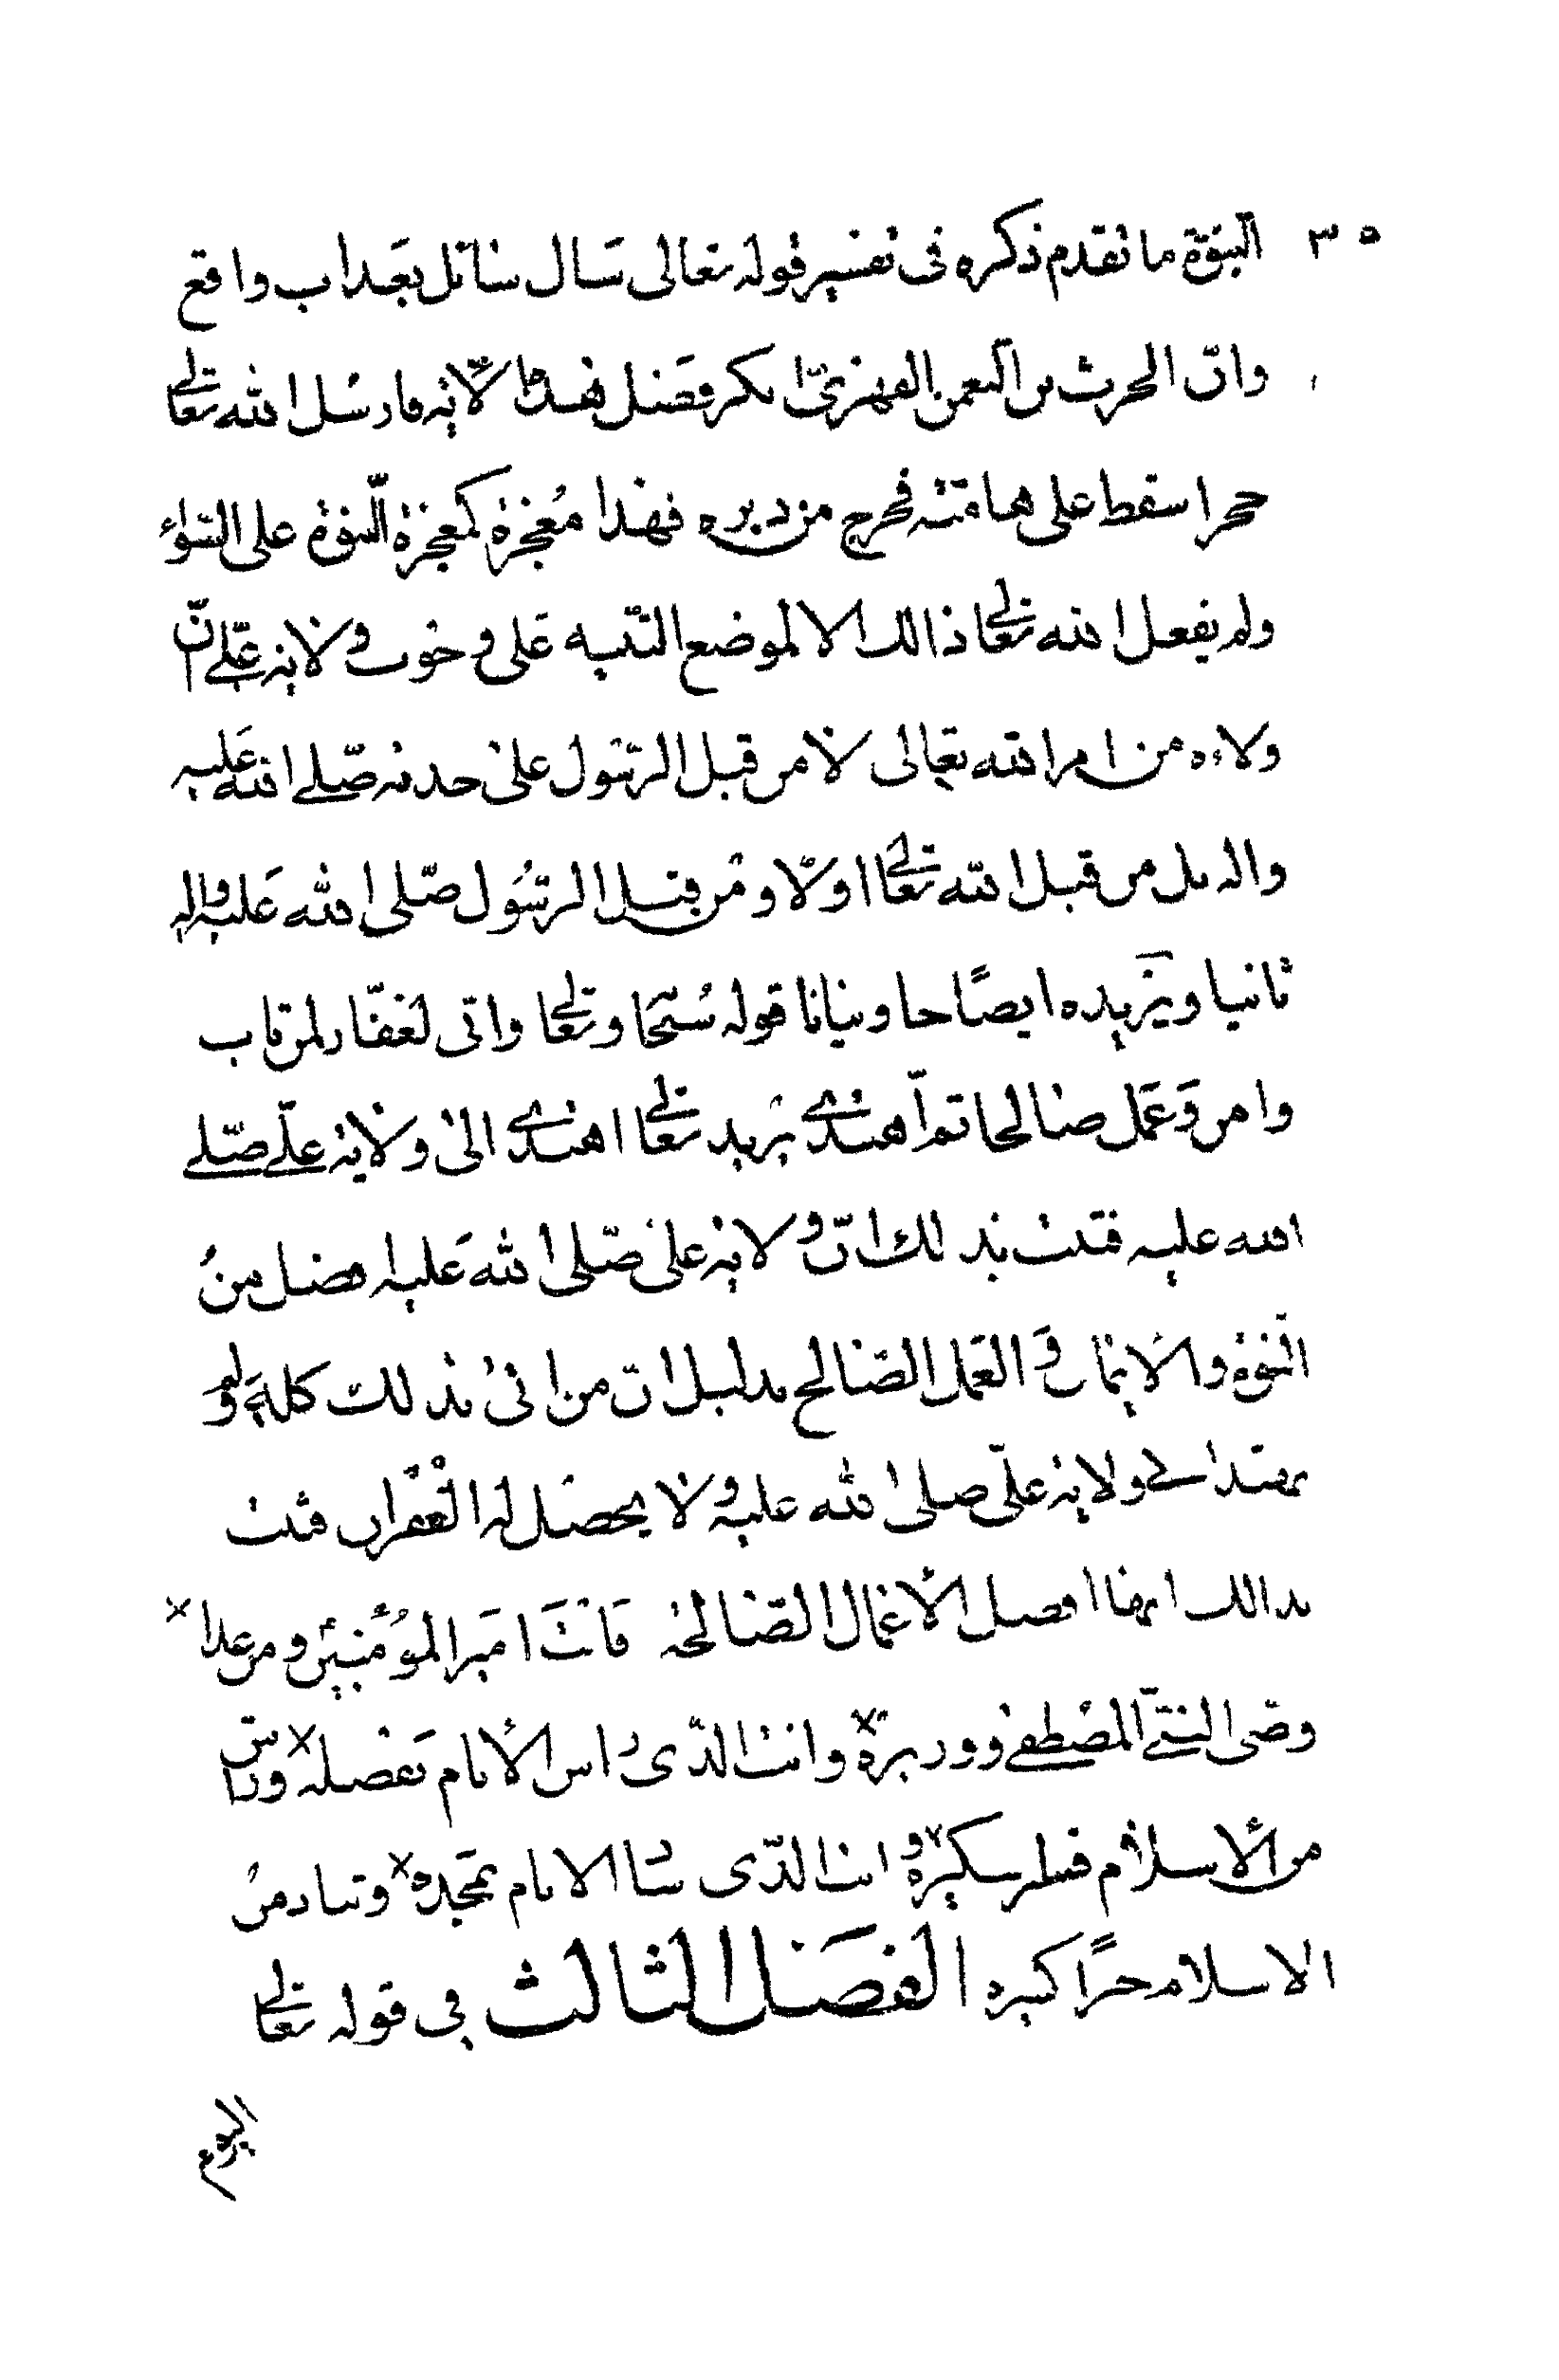 ٣٥
النبوّة ما تقدم ذكره فى تفسير قوله تعالى سَال سائل بعَذاب واقع
وانّ الحرث بن النعمن الفهرىّ انكر فضل هذا لانّه فارسل الله تعالى
حجرا سقط على هامته فخرج من دبره فهذا مُعجزة كمعجزة النبوّة على السّواء
ولم يفعل الله تعالى ذالك الا لموضع التنبيه عَلى وجوب ولايته علىّ انّ
ولاءه من امر الله تعالى لا من قبل الرّسول على حدته صلّى الله عَليه
واله بل من قبل الله تعالى اولا ومن قبل الرّسُول صلّى الله عَليه واله
ثانيا ويزيده ايضًاحا وبيانا قوله سُبحا وتعالى وانى لغفّار لمن تاب
وامن وَعَمل صالحا ثم اهتدى يريد تعالى اهتدى الى ولاية علىّ صلّى
الله عليه فثبت بذلك انّ ولاية على صلّى الله عَليه افضل منُ
النبوّة والايمان وَ العَمل الصّالح بدليل انّ من اتى بذلك كله وَلم
يهتد الى ولاية علىّ صلى الله عليه ولا يحصل له الغفران فثبت
بذالك انها افضل الأعمال الصّالحة فانتَ امَير المؤمنين ومن علا ×
وصى النبىّ المصطفى ووزيره × وانت الذّى راس الانام بفضله × وراس
من الاسلام فيه سكيره × وانت الذّى ساد الانام بمجده × وساد من
الاسلام حرًا كبيره الفصَل الثالث فى قوله تعالى
اليوم